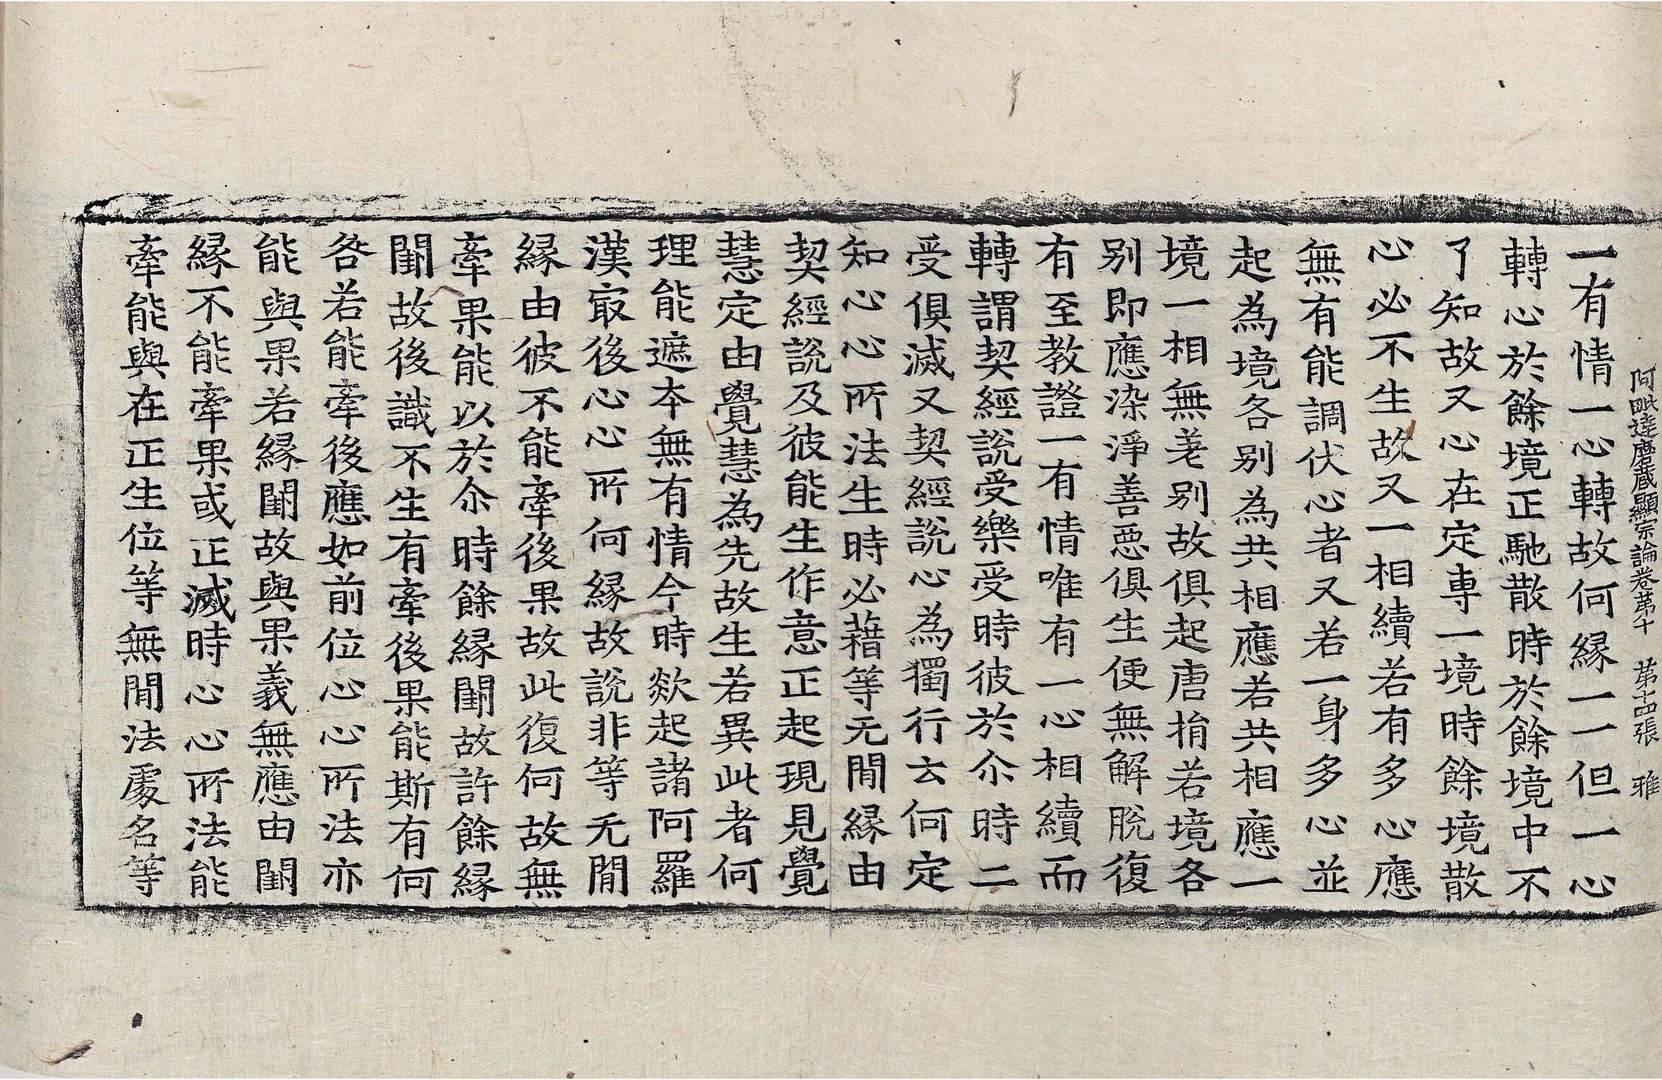 阿毗達磨藏顯宗論卷第十　第十四張　雅
一有情一心轉故何縁一一但一心
轉心於餘境正馳散時於餘境中不
了知故又心在定專一境時餘境散
心必不生故又一相續若有多心應
無有能調伏心者又若一身多心並
起為境各別為共相應若共相應一
境一相無差别故俱起唐捐若境各
別即應染淨善惡俱生便無解脫復
有至教證一有情唯有一心相續而
轉謂契經說受樂受時彼於尒時二
受俱滅又契經說心為獨行云何定
知心心所法生時必藉等无間縁由
契經說及彼能生作意正起現見覺
慧定由覺慧為先故生若異此者何
理能遮本無有情今時欻起諸阿羅
漢㝡後心心所何縁故說非等无間
縁由彼不能牽後果故此復何故無
牽果能以於尒時餘縁闕故許餘縁
闕故後識不生有牽後果能斯有何
咎若能牽後應如前位心心所法亦
能與果若縁闕故與果義無應由闕
縁不能牽果或正滅時心心所法能
牽能與在正生位等無間法處名等